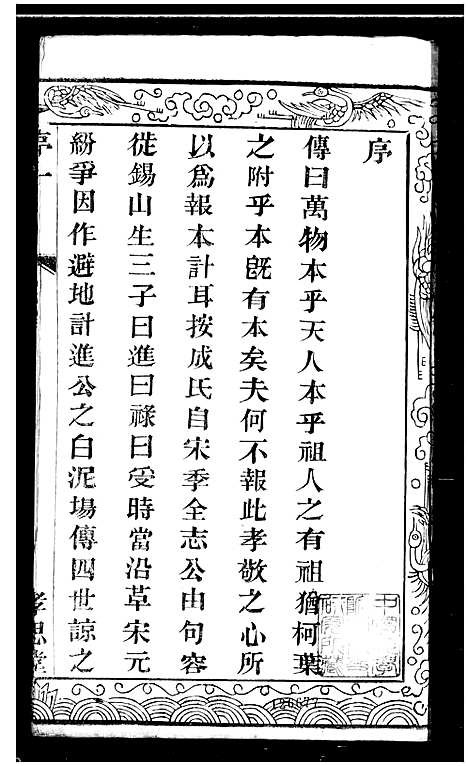 序
傳曰萬物本乎天人本乎祖人之有祖猶柯葉
之附乎本旣有本矣夫何不報此孝敬之心所
以爲報本計耳按成氏自宋季全志公由句容
徙錫山生三子曰進曰祿曰受時當沿草宋元
紛爭因作避地計進公之白泥場傳四世諒之
序一
孝思堂